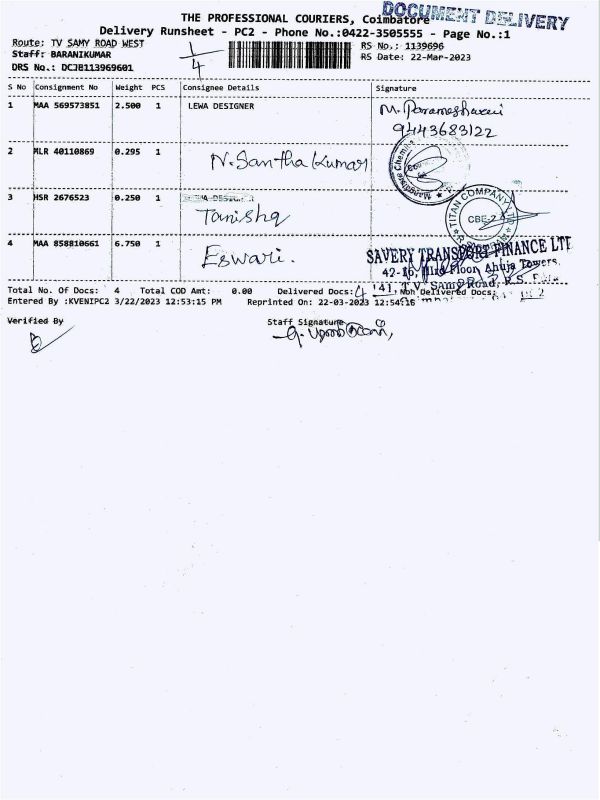 DOCUMENT DELIVERY
THE PROFESSIONAL COURIERS, Coimbatore
Delivery Runsheet - PC2 - Phone No.:0422-3505555 - Page No.:1
Route: TV SAMY ROAD WEST
1/4
RS No.: 1139696
Staff: BARANIKUMAR
RS Date: 22-Mar-2023
DRS No.: DCJB113969601
S No Consignment No Weight PCS Consignee Details Signature
1 MAA 569573851 2.500 1 LEWA DESIGNER M. Parameshwari
9443683122
2 MLR 40110869 0.295 1 N. Santha Kumar
Mangalore Chemil
3 HSR 2676523 0.250 1
Tanishq
TITAN COMPANY
CBE-2
4 MAA 858810661 6.750 1 Eswari.
SAVERY TRANSPORT FINANCE LT
42-16, IIIrd Floor Ahuja Towers,
T.V. Samy Road, R.S.
Total No. Of Docs: 4 Total COD Amt: 0.00 Delivered Docs: 4 Non Delivered Docs:
Entered By :KVENIPC2 3/22/2023 12:53:15 PM Reprinted On: 22-03-2023 12:54:16
Verified By Staff Signature